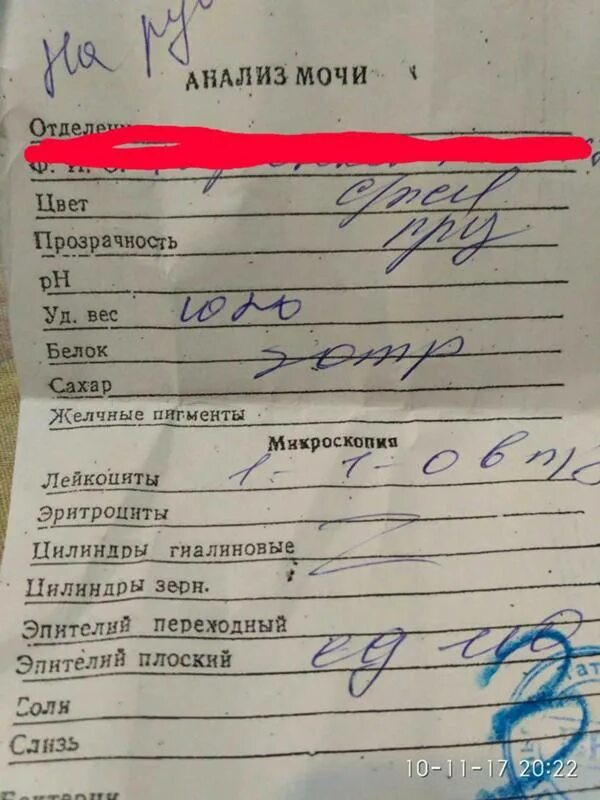 На ру
АНАЛИЗ МОЧИ
Отделен
Ф. И. О.
Цвет с/жел
Прозрачность пр
pH
Уд. вес 1020
Белок отр
Сахар
Желчные пигменты
Микроскопия
Лейкоциты 1-1-0 в п/з
Эритроциты
Цилиндры гиалиновые
Цилиндры зерн.
Эпителий переходный
Эпителий плоский ед
Соли
Слизь
Бактерии
10-11-17 20:22